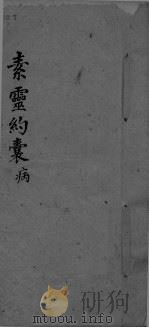 素靈約囊病
研狗
mtoou.info